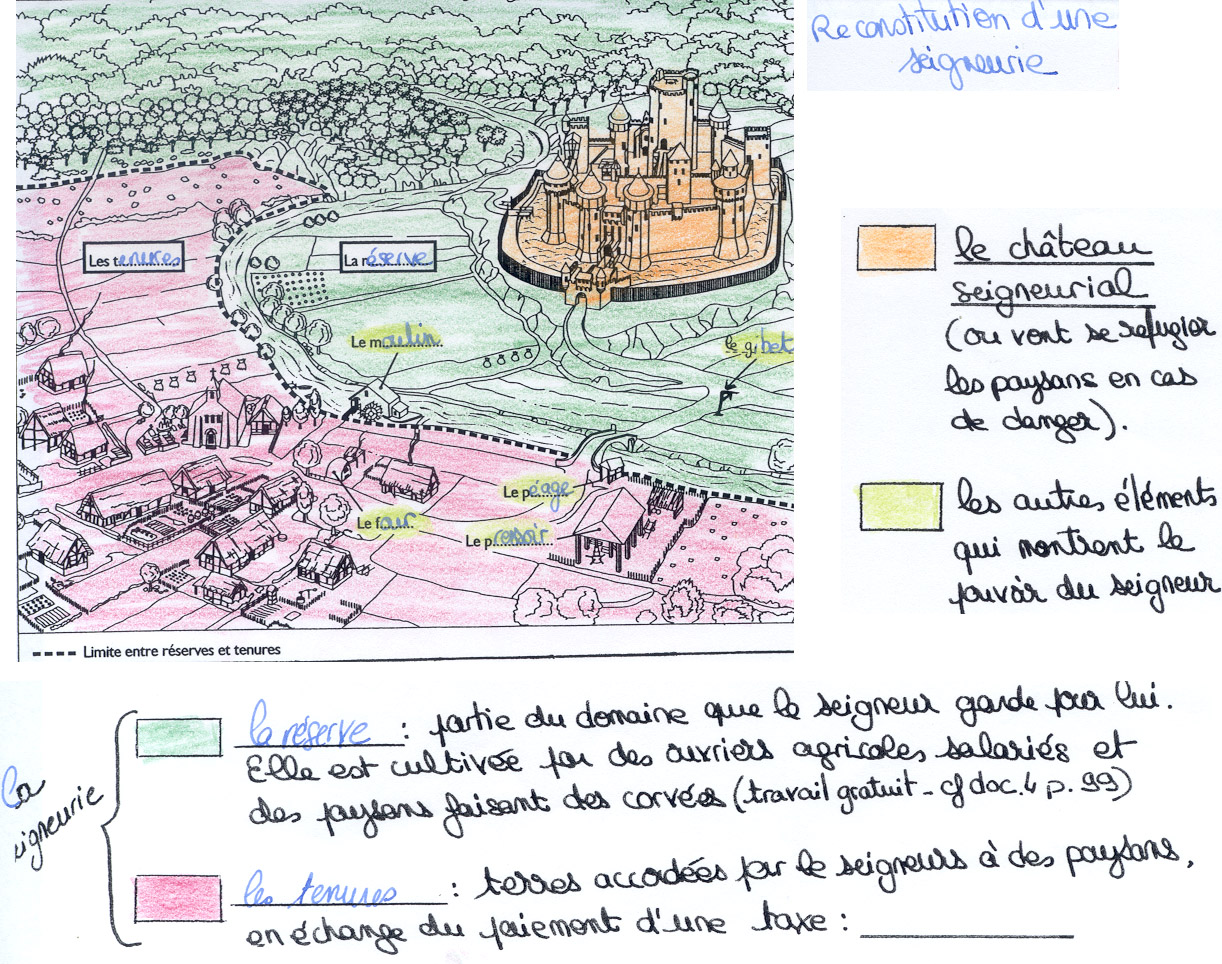 Reconstitution d'une
seigneurie
Les tenures
La réserve
Le moulin
le gibet
Le péage
Le four
Le pressoir
Limite entre réserves et tenures
le château
seigneurial
(ou vont se refugier
les paysans en cas
de danger).
les autres éléments
qui montrent le
pouvoir du seigneur
la
eigneurie
la réserve : partie du domaine que le seigneur garde pour lui.
Elle est cultivée par des ouvriers agricoles salariés et
des paysans faisant des corvées (travail gratuit - cf doc.4 p.99)
les tenures : terres accordées par le seigneurs à des paysans,
en échange du paiement d'une taxe :